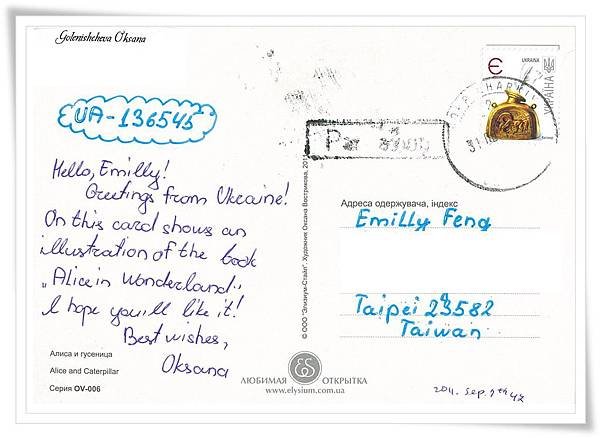 Golenishcheva Oksana
UA-136545
Hello, Emilly!
Greetings from Ukraine!
On this card shows an
illustration of the book
„Alice in Wonderland".
I hope you'll like it!
Best wishes,
Oksana
Алиса и гусеница
Alice and Caterpillar
Серия OV-006
© ООО "Элизиум-Стайл". Художник Оксана Вострикова, 2011
Par avion
Є
УКРАЇНА
УКРАЇНА
KHARKIV
Адреса одержувача, індекс
Emilly Feng
Taipei 23582
Taiwan
ЛЮБИМАЯ ОТКРЫТКА
www.elysium.com.ua
2011. Sep. 9th